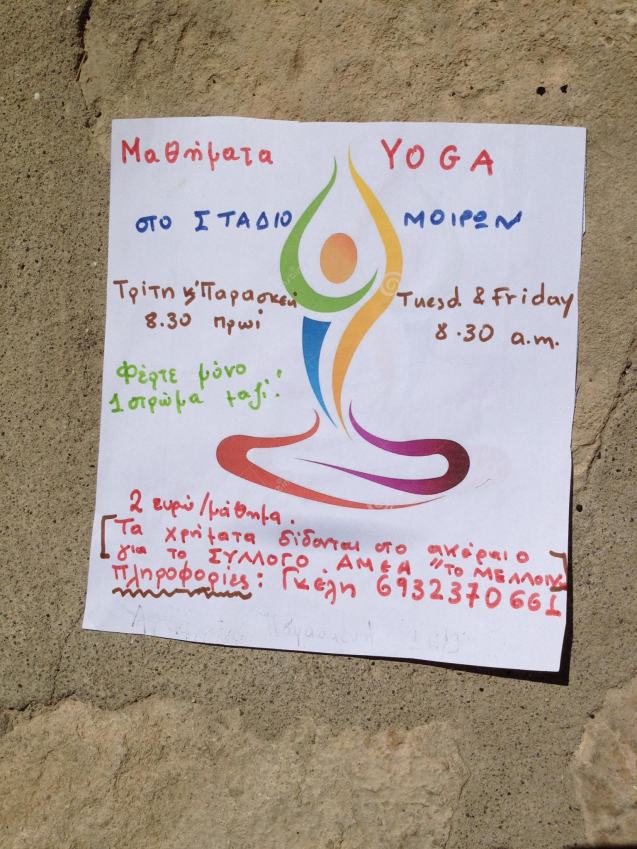 Μαθήματα YOGA
στο ΣΤΑΔΙΟ ΜΟΙΡΩΝ
Τρίτη κ' Παρασκευή
8.30 πρωί
Tuesd & Friday
8.30 a.m.
Φέρτε μόνο
1 στρώμα μαζί!
2 ευρώ/μάθημα.
[Τα χρήματα δίδονται στο ακέραιο
για το ΣΥΛΛΟΓΟ ΑΜΕΑ "ΤΟ ΜΕΛΛΟΝ"]
Πληροφορίες: Γκέλη 6932370661